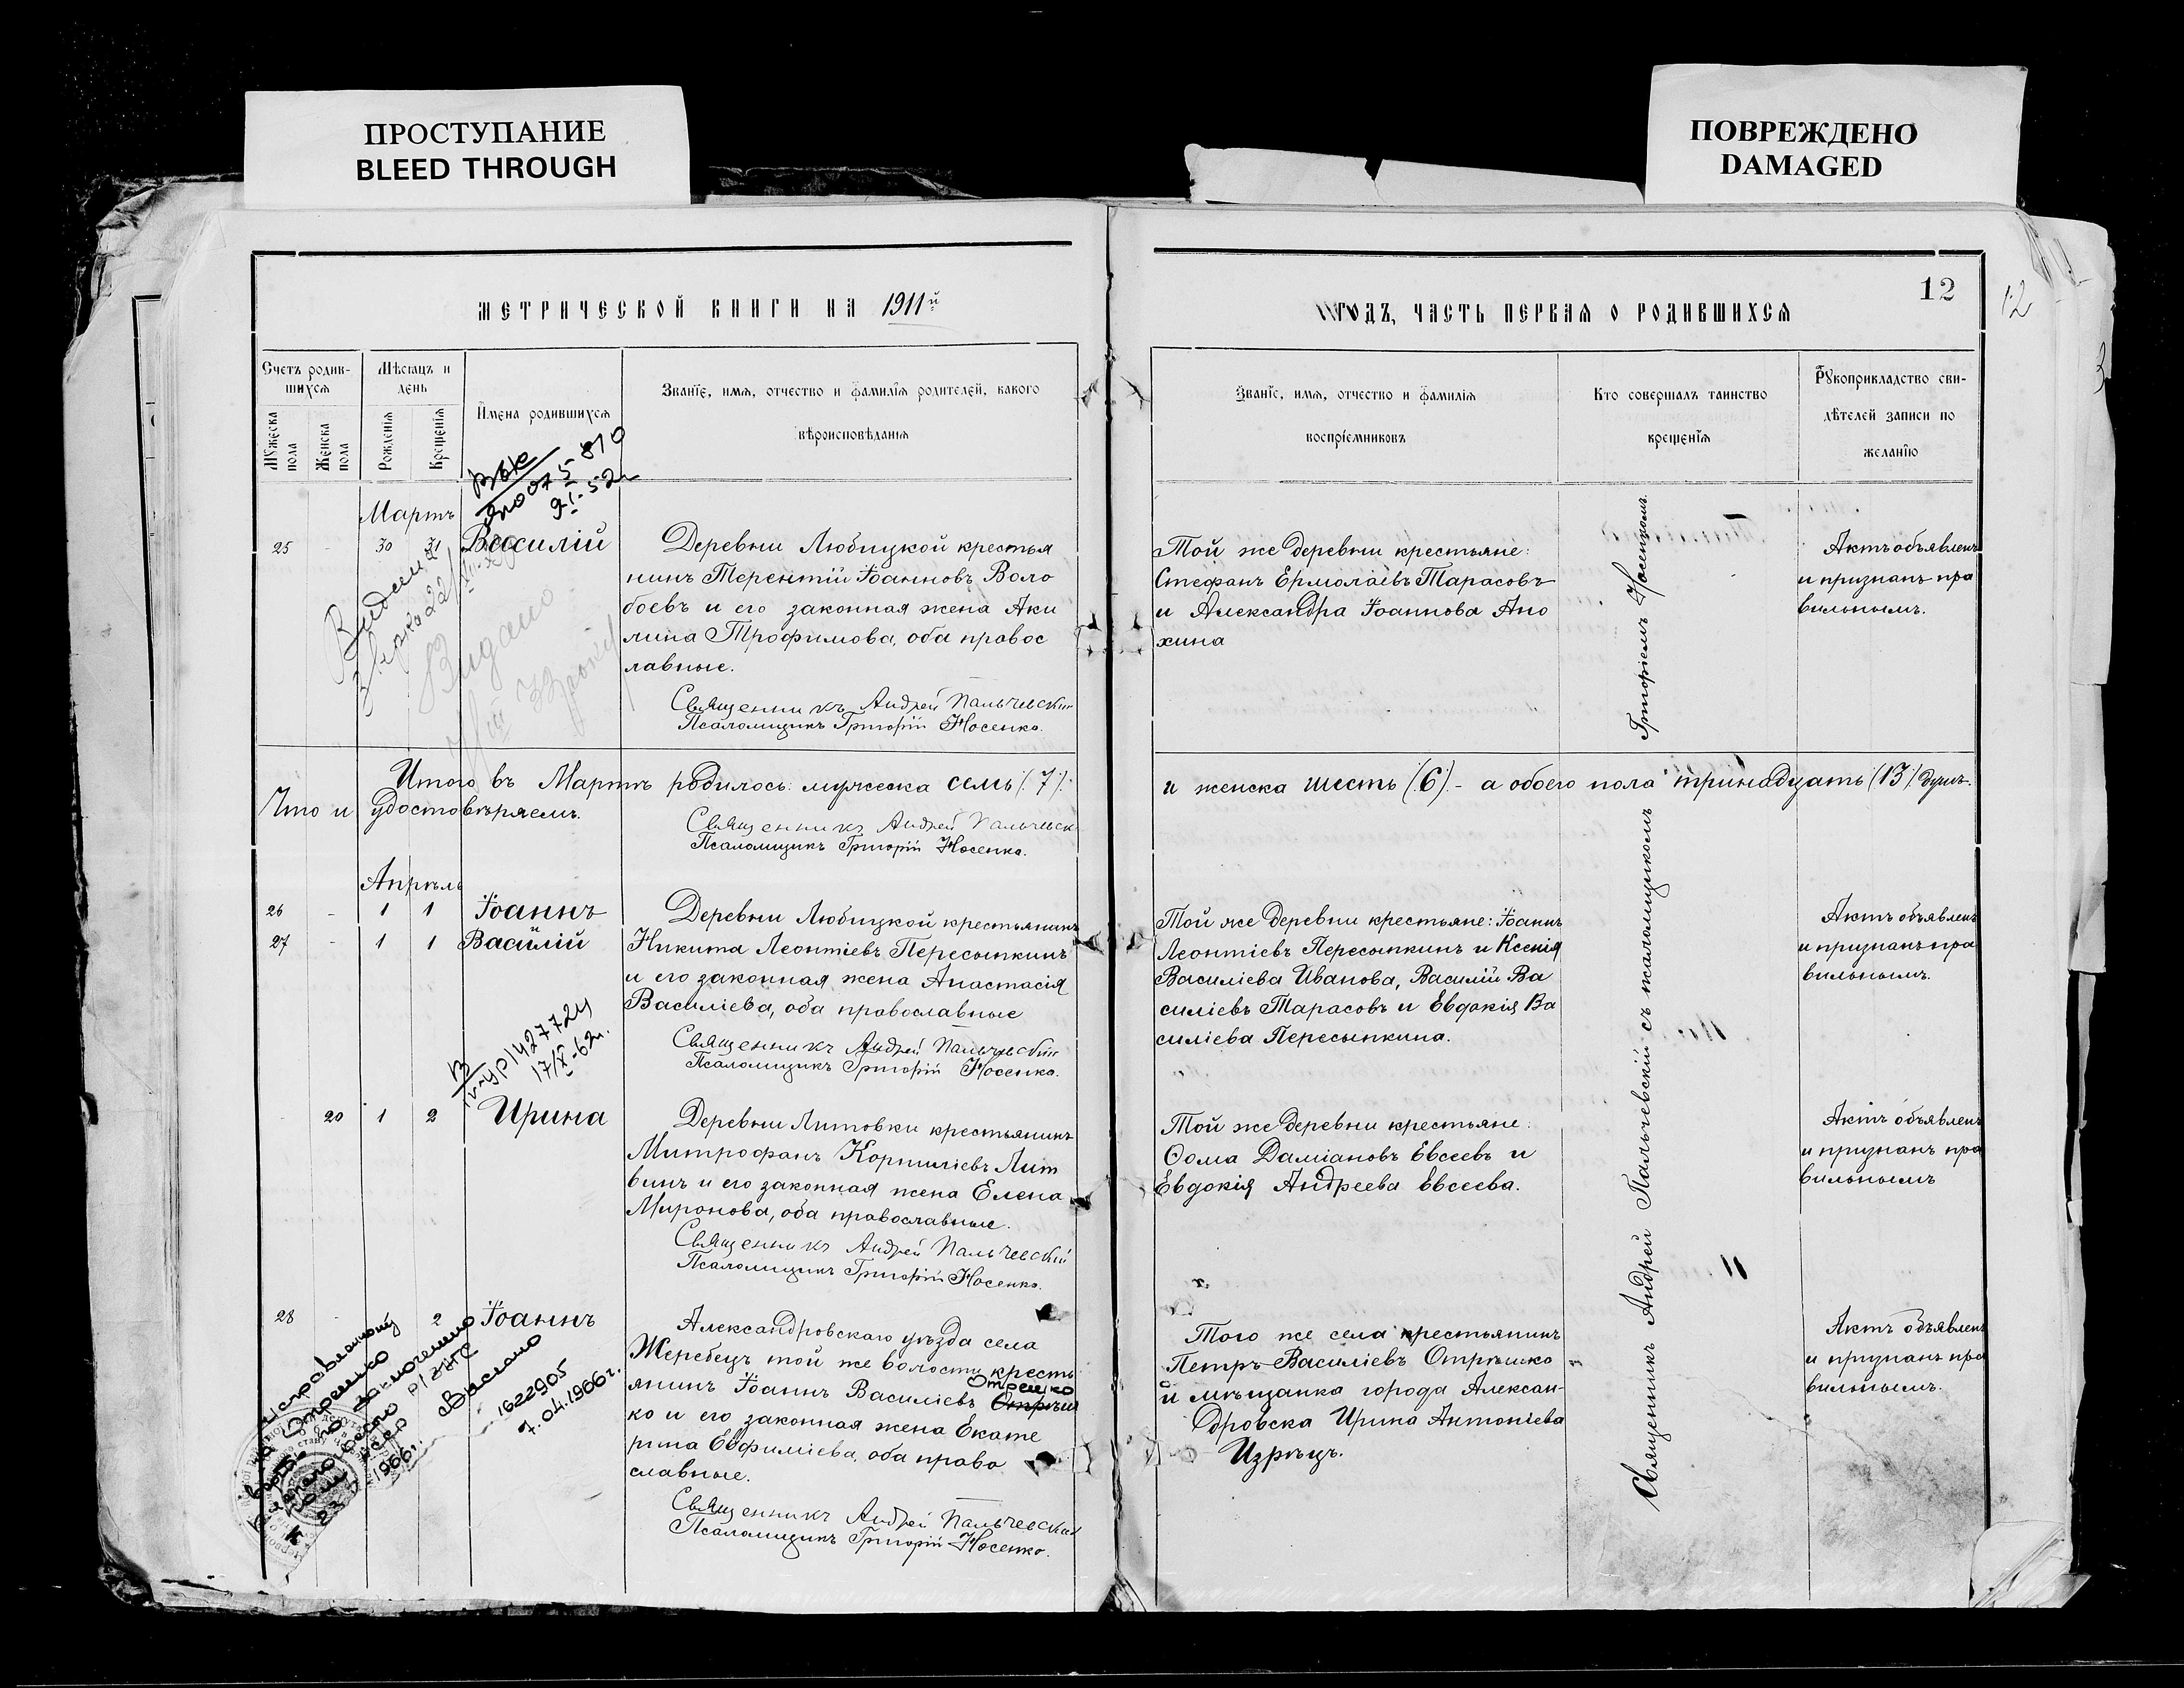 ПРОСТУПАНИЕ
BLEED THROUGH
ПОВРЕЖДЕНО
DAMAGED
МЕТРИЧЕСКОЙ КНИГИ НА 1911й
ГОДЪ, ЧАСТЬ ПЕРВАЯ О РОДИВШИХСЯ
12
12
3
Счетъ родив-
шихся
Мужеска
пола
Женска
пола
Мѣсяцъ и
день
Рожденія
Крещенія
Имена родившихся
Званіе, имя, отчество и фамилія родителей, какого
вѣроисповѣданія
Званіе, имя, отчество и фамилія
воспріемниковъ
Кто совершалъ таинство
крещенія
Рукоприкладство сви-
дѣтелей записи по
желанію
Мартъ
25 - 30 31 Василій
Деревни Любицкой крестья
нинъ Терентій Іоанновъ Воло
боевъ и его законная жена Аки
лина Трофимова, оба правос
лавные.
Священникъ Андрей Пальчевскій
Псаломщикъ Григорій Носенко.
Той же деревни крестьяне:
Стефанъ Ермолаевъ Тарасовъ
и Александра Іоаннова Ано
хина
Актъ объявленъ
и признанъ пра
вильнымъ.
Итого въ Мартѣ родилось: мужеска семь (7)
и женска шесть (6) - а обоего пола тринадцать (13) душъ.
Что и удостовѣряемъ.
Священникъ Андрей Пальчевск
Псаломщикъ Григорій Носенко.
Апрѣль
26 - 1 1 Іоаннъ
27 - 1 1 и Василій
Деревни Любицкой крестьянинъ
Никита Леонтіевъ Пересыпкинъ
и его законная жена Анастасія
Василіева, оба православные
Священникъ Андрей Пальчевскій
Псаломщикъ Григорій Носенко.
Той же деревни крестьяне: Іоаннъ
Леонтіевъ Пересыпкинъ и Ксенія
Василіева Иванова, Василій Ва
силіевъ Тарасовъ и Евдокія Ва
силіева Пересыпкина.
Актъ объявленъ
и признанъ пра
вильнымъ.
427724
17/X-62г.
- 20 1 2 Ирина
Деревни Литовки крестьянинъ
Митрофанъ Корниліевъ Лит
винъ и его законная жена Елена
Миронова, оба православные.
Священникъ Андрей Пальчевскій
Псаломщикъ Григорій Носенко.
Той же деревни крестьяне:
Ѳома Даміановъ Евсеевъ и
Евдокія Андреева Евсеева.
Актъ объявленъ
и признанъ пра
вильнымъ
28 - 2 Іоаннъ
Александровскаго уѣзда села
Жеребецъ той же волости кресть
янинъ Іоаннъ Василіевъ Отрѣш
Отрешко
ко и его законная жена Екате
рина Евфиміева, оба право
славные.
Священникъ Андрей Пальчевскій
Псаломщикъ Григорій Носенко.
Того же села крестьянинъ
Петръ Василіевъ Отрѣшко
и мѣщанка города Алексан-
дровска Ирина Антоніева
Изрѣцъ.
Актъ объявленъ
и признанъ пра
вильнымъ.
Исправленному
на Отрешко
1966г.
1622905
7.04.1966г.
Священникъ Андрей Пальчевскій съ псаломщикомъ Григоріемъ Носенкомъ